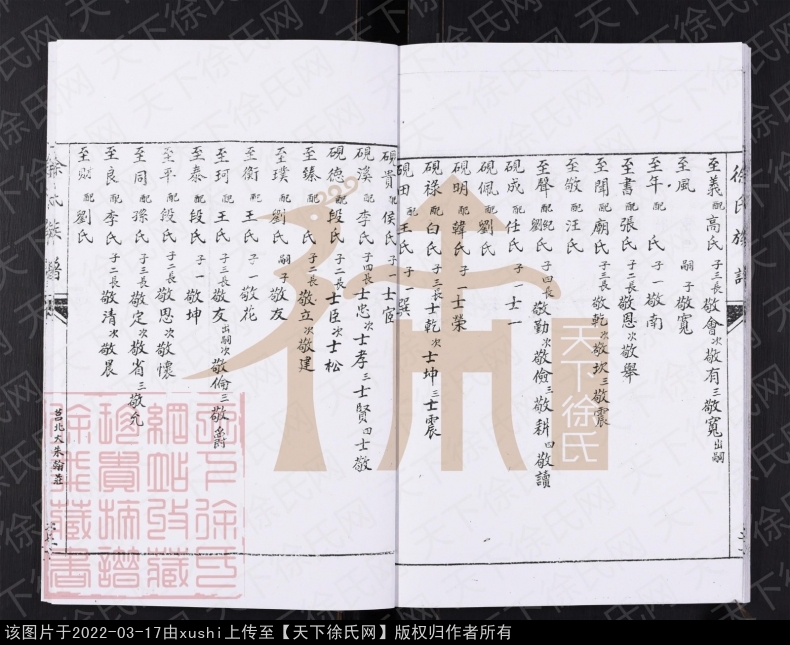 徐氏族譜
至義配高氏子三長敬會次敬有三敬寬出嗣
至風嗣子敬寬
至年 氏子一敬南
至書配張氏子二長敬恩次敬舉
至開配廟氏子三長敬乾次敬坎三敬震
至敬配汪氏
至聲配劉氏子四長敬勤次敬儉三敬耕四敬讀
硯成配仕氏子一士一
硯佩配劉氏
硯明配韓氏子一士榮
硯祿配白氏子三長士乾次士坤三士震
硯田配王氏子一
硯貴配侯氏子一士宦
硯溪配李氏子四長士忠次士孝三士賢四士敬
硯德配段氏子二長士臣次士松
至臻配段氏子二長敬立次敬建
至璞配劉氏嗣子敬友
至珂配王氏子三長敬友出嗣次敬倫三敬爵
至衡配王氏子一敬花
至泰配段氏子一敬坤
至平配段氏子二長敬思次敬懷
至同配孫氏子三長敬定次敬省三敬允
至良配李氏子二長敬清次敬晨
至財配劉氏
徐氏族譜
莒北大朱翰莊
天下徐氏
天下徐氏网
该图片于2022-03-17由xushi上传至【天下徐氏网】版权归作者所有